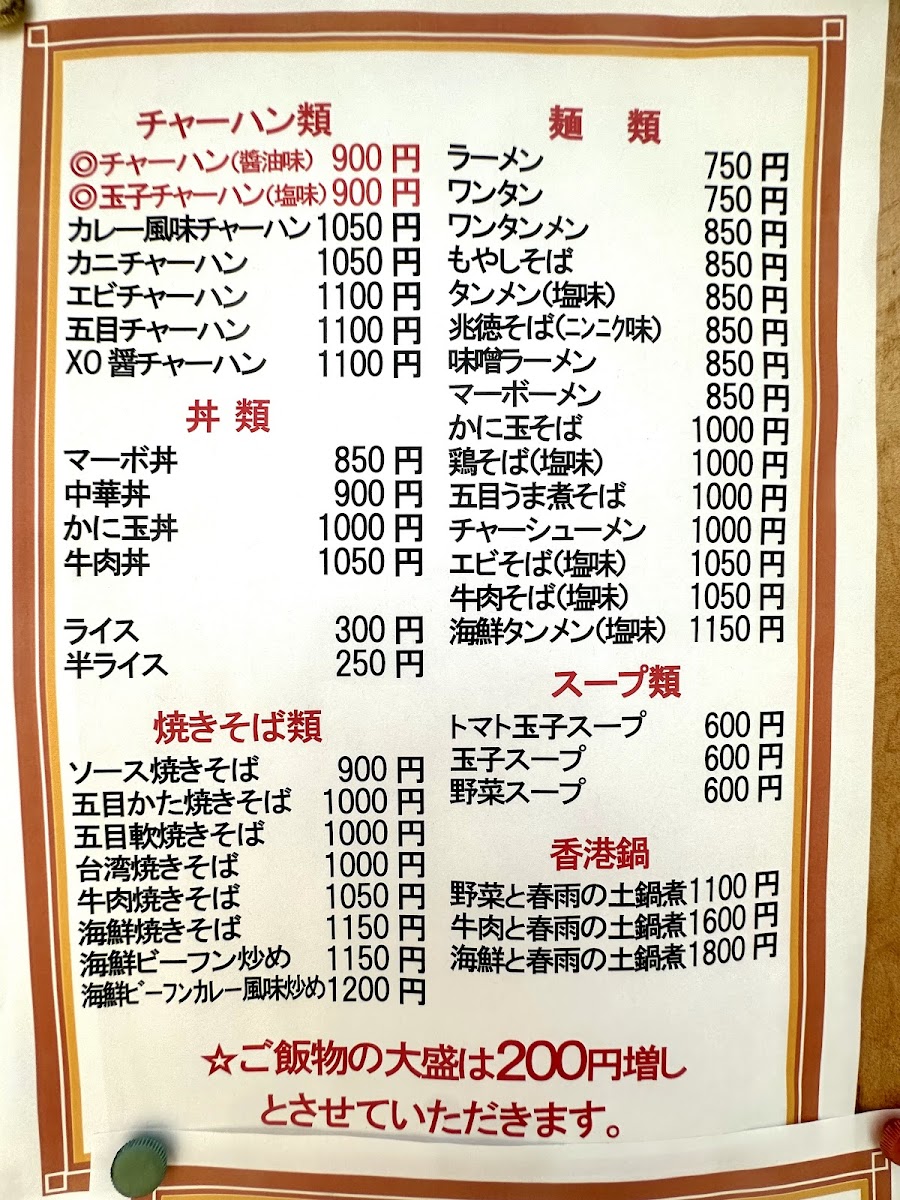 チャーハン類
◎チャーハン(醬油味) 900円
◎玉子チャーハン(塩味) 900円
カレー風味チャーハン 1050円
カニチャーハン 1050円
エビチャーハン 1100円
五目チャーハン 1100円
XO醤チャーハン 1100円
丼類
マーボ丼 850円
中華丼 900円
かに玉丼 1000円
牛肉丼 1050円
ライス 300円
半ライス 250円
焼きそば類
ソース焼きそば 900円
五目かた焼きそば 1000円
五目軟焼きそば 1000円
台湾焼きそば 1000円
牛肉焼きそば 1050円
海鮮焼きそば 1150円
海鮮ビーフン炒め 1150円
海鮮ビーフンカレー風味炒め 1200円
麺類
ラーメン 750円
ワンタン 750円
ワンタンメン 850円
もやしそば 850円
タンメン(塩味) 850円
兆徳そば(ニンニク味) 850円
味噌ラーメン 850円
マーボーメン 850円
かに玉そば 1000円
鶏そば(塩味) 1000円
五目うま煮そば 1000円
チャーシューメン 1000円
エビそば(塩味) 1050円
牛肉そば(塩味) 1050円
海鮮タンメン(塩味) 1150円
スープ類
トマト玉子スープ 600円
玉子スープ 600円
野菜スープ 600円
香港鍋
野菜と春雨の土鍋煮 1100円
牛肉と春雨の土鍋煮 1600円
海鮮と春雨の土鍋煮 1800円
☆ご飯物の大盛は200円増し
とさせていただきます。